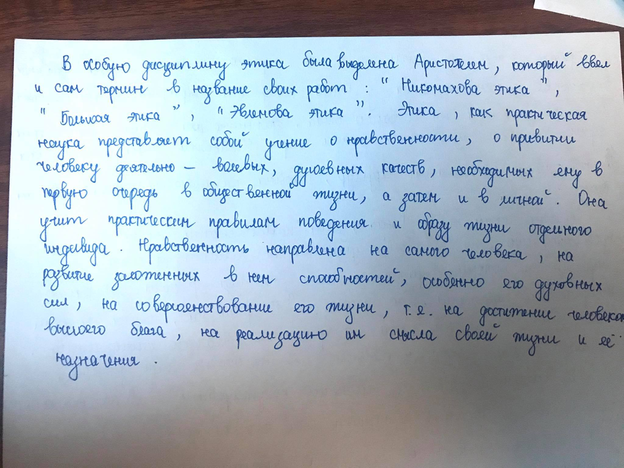 В особую дисциплину этика была выделена Аристотелем, который ввел
и сам термин в название своих работ : " Никомахова этика ",
" Большая этика ", " Эвдемова этика ". Этика, как практическая
наука представляет собой учение о нравственности, о привитии
человеку деятельно - волевых, душевных качеств, необходимых ему в
первую очередь в общественной жизни, а затем и в личной. Она
учит практическим правилам поведения и образу жизни отдельного
индивида. Нравственность направлена на самого человека, на
развитие заложенных в нем способностей, особенно его духовных
сил, на совершенствование его жизни, т.е. на достижении человеком
высшего блага, на реализацию им смысла своей жизни и её
назначения.